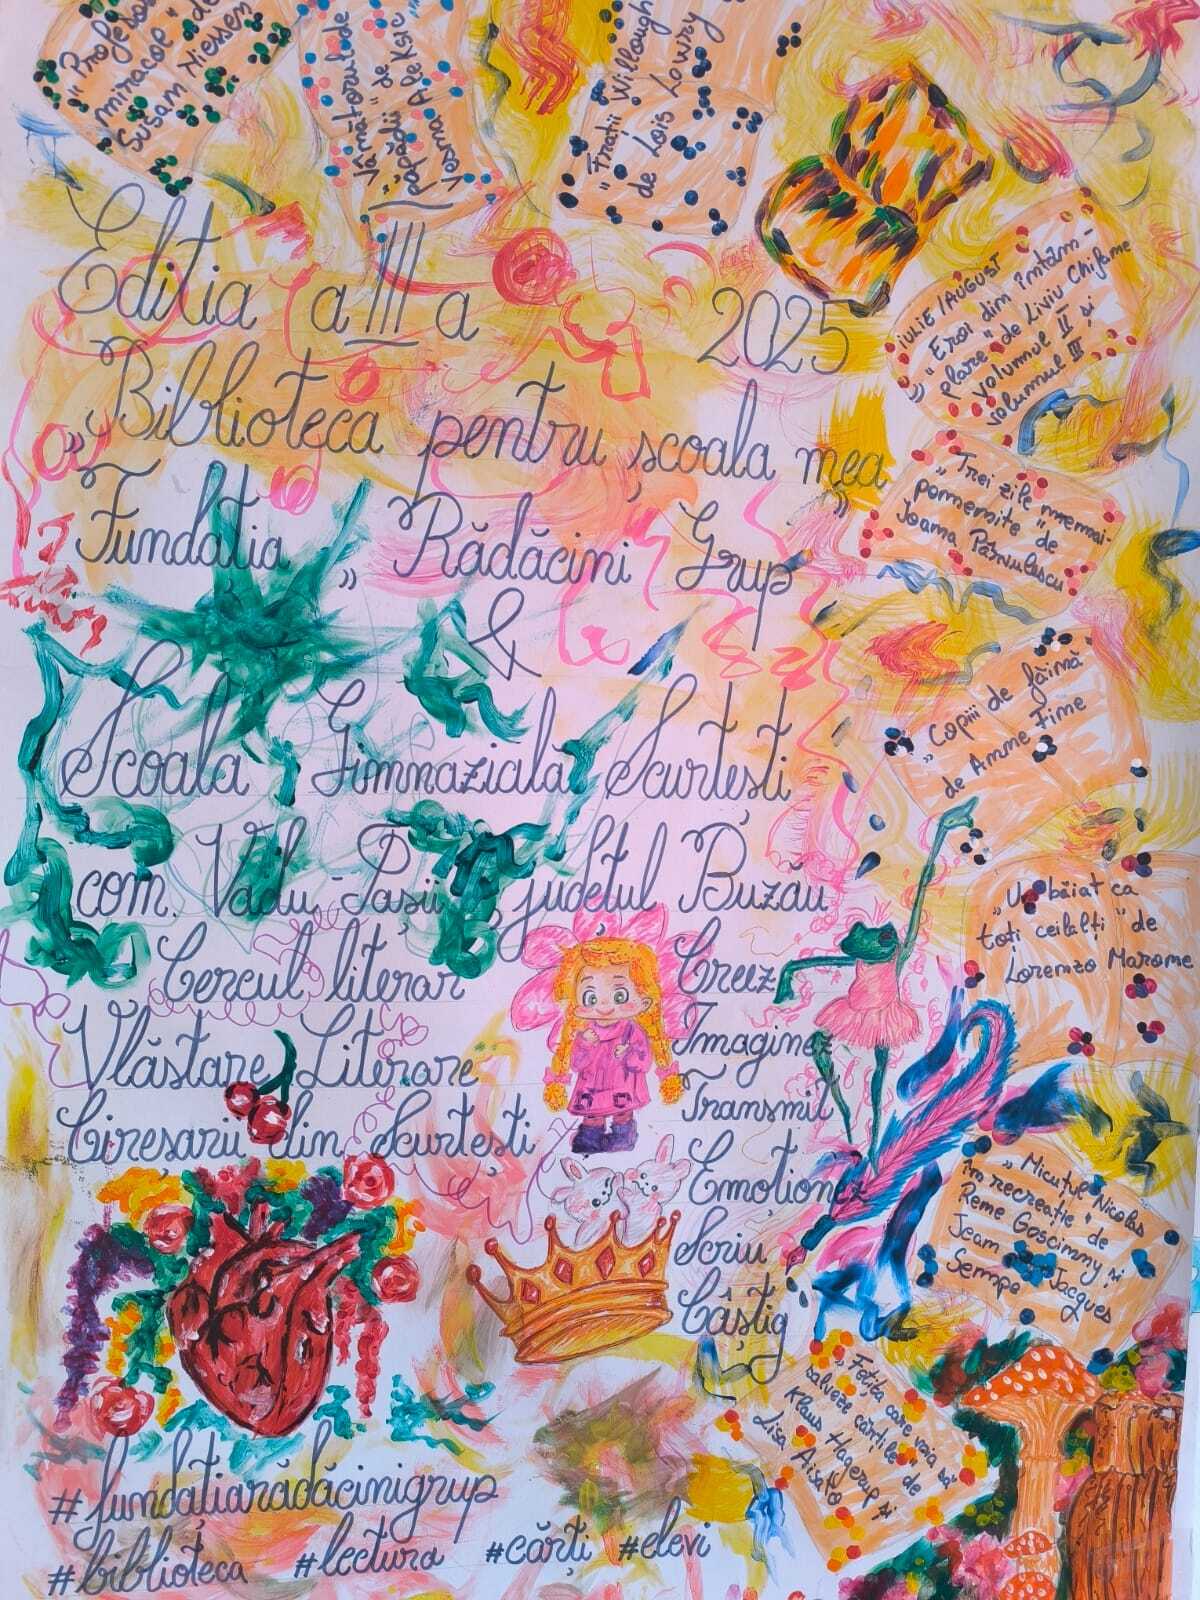 "Profesorul
miracol" de
Susam Niessen
Vânătorul de
păpădii" de
Vesna A de Ksie
"Frații Willoughby
de Lois Lowry
Editia a III a 2025
"Biblioteca pentru școala mea"
Fundatia "Rădăcini Grup"
&
Școala Gimnazială Scurtești
com. Vadu-Pașii, județul Buzău
Cercul literar
Vlăstare Literare
Cireșarii din Scurtești
Creez
Imaginez
Transmit
Emoționez
Scriu
Câștig
IULIE/AUGUST
"Eroi din întâm-
plare" de Liviu Chifane
volumul II și
volumul III
"Trei zile nemai-
pomenite" de
Ioana Pârvulescu
"Copiii de făină
de Anne Fine
"Un băiat ca
toți ceilalți" de
Lorenzo Marone
"Micuțul Nicolas
în recreație" de
Rene Goscinny și
Jean Jacques
Sempe
"Fetița care voia să
salveze cărțile" de
Klaus Hagerup și
Lisa Aisato
#fundațiarădăcinigrup
#biblioteca #lectura #cărți #elevi